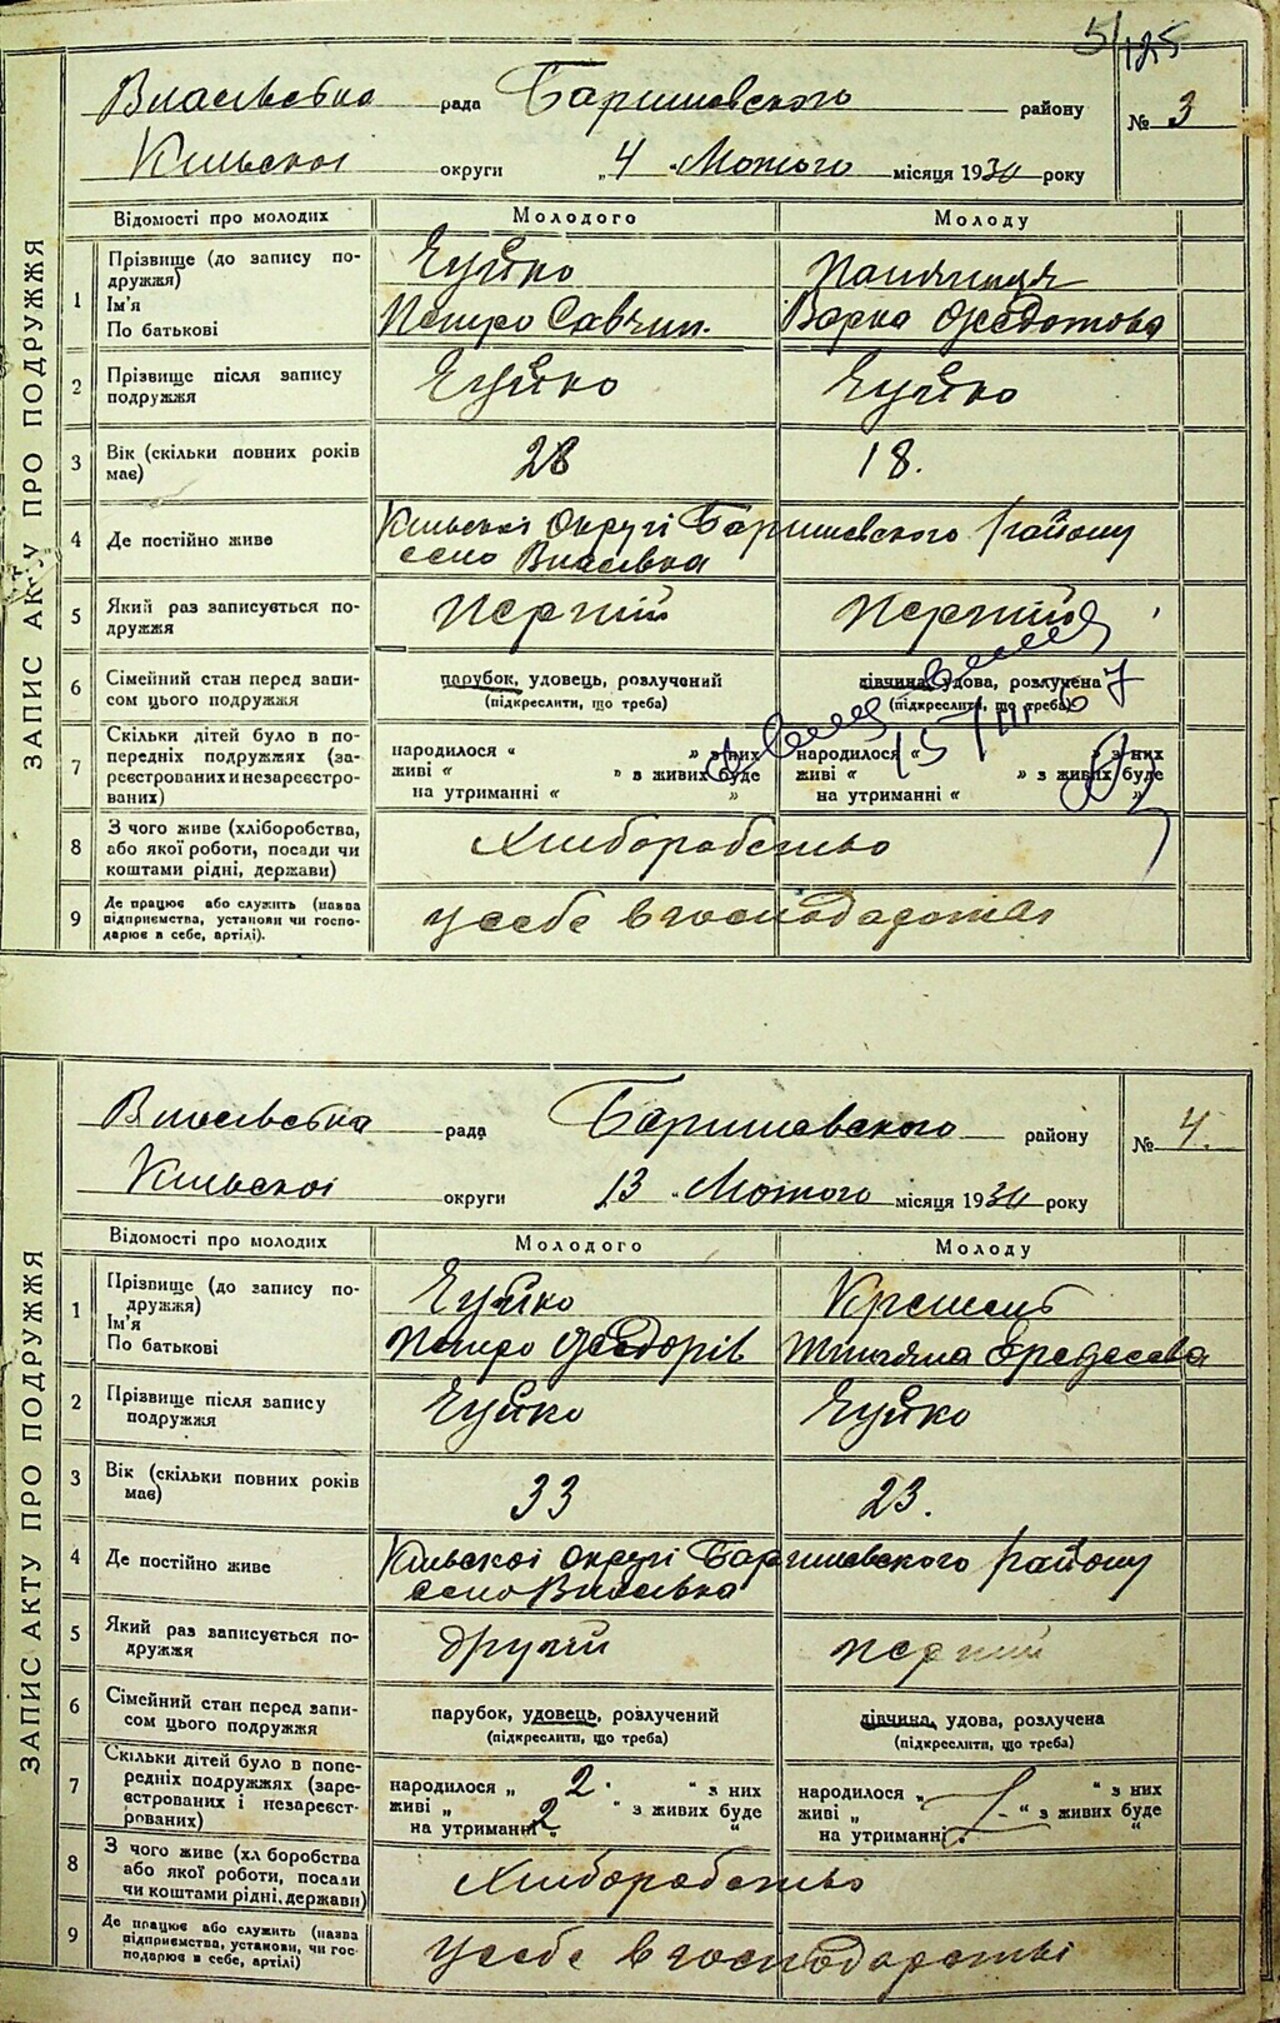 5/125
Власівська рада Баришевського району № 3
Київської округи „4 “ Лютого місяця 1930 року
ЗАПИС АКТУ ПРО ПОДРУЖЖЯ
Відомості про молодих Молодого Молоду
1 Прізвище (до запису подружжя)
Ім'я
По батькові
Гуйко
Петро Савчин.
Варка Федотова
2 Прізвище після запису
подружжя
Гуйко Гуйко
3 Вік (скільки повних років
має)
28 18.
4 Де постійно живе
Київської Округі Баришевського району
село Власівка
5 Який раз записується по-
дружжя
Перший Перший
6 Сімейний стан перед запи-
сом цього подружжя
парубок, удовець, розлучений
(підкреслити, що треба)
дівчина, удова, розлучена
(підкреслити, що треба)
7 Скільки дітей було в по-
передніх подружжях (за-
реєстрованих и незареєстро-
ваних)
народилося “ » з них
живі “ » з живих буде
на утриманні “ »
народилося “ » з них
живі “ » з живих буде
на утриманні “ »
8 З чого живе (хліборобства,
або якої роботи, посади чи
коштами рідні, держави)
Хліборобство
9 Де працює або служить (назва
підприємства, установи чи госпо-
дарює в себе, артілі).
у себе в господарстві
Власівська рада Баришевського району № 4.
Київської округи „13 “ Лютого місяця 1930 року
ЗАПИС АКТУ ПРО ПОДРУЖЖЯ
Відомості про молодих Молодого Молоду
1 Прізвище (до запису по-
дружжя)
Ім'я
По батькові
Гуйко
Петро Федорів
Кремень
Тетяна
2 Прізвище після запису
подружжя
Гуйко Гуйко
3 Вік (скільки повних років
має)
33 23.
4 Де постійно живе
Київської округі Баришевського району
село Власівка
5 Який раз записується по-
дружжя
другий перший
6 Сімейний стан перед запи-
сом цього подружжя
парубок, удовець, розлучений
(підкреслити, що треба)
дівчина, удова, розлучена
(підкреслити, що треба)
7 Скільки дітей було в попе-
редніх подружжях (заре-
єстрованих і незареєст-
рованих)
народилося „ 2. “ з них
живі „ 2 “ з живих буде
на утриманні „ “
народилося „ “ з них
живі „ “ з живих буде
на утриманні „ “
8 З чого живе (хл боробства
або якої роботи, посади
чи коштами рідні, держави)
Хліборобство
9 Де працює або служить (назва
підприємства, установи, чи гос-
подарює в себе, артілі)
у себе в господарстві